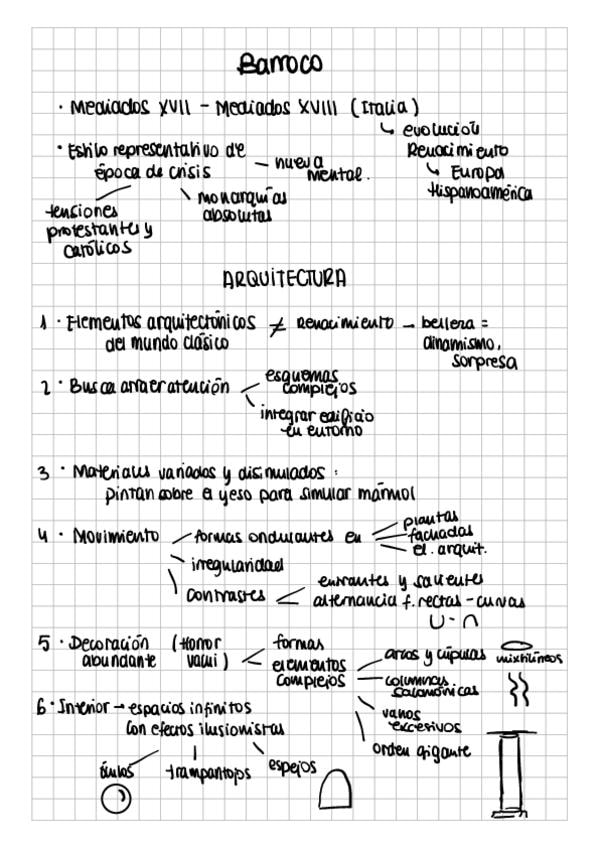 Barroco
· Mediados XVII - Mediados XVIII (Italia)
↳ evolución
Renacimiento
↳ Europa
Hispanoamérica
· Estilo representativo de
época de crisis
- nueva
mental.
monarquías
absolutas
tensiones
protestantes y
católicos
ARQUITECTURA
1 · Elementos arquitectónicos ≠ Renacimiento → belleza =
del mundo clásico
dinamismo,
sorpresa
2 · Busca atraer atención
esquemas
complejos
integrar edificio
en entorno
3 · Materiales variados y disimulados:
pintan sobre el yeso para simular mármol
4 · Movimiento
formas ondulantes en
plantas
fachadas
el. arquit.
irregularidad
contrastes
entrantes y salientes
alternancia f. rectas - curvas
∪ - ∩
5 · Decoración (Horror
abundante vacui)
formas
elementos
complejos
arcos y cúpulas mixtilíneos
columnas
salomónicas
vanos
excesivos
orden gigante
6 · Interior → espacios infinitos
con efectos ilusionistas
óculos
trampantojos
espejos